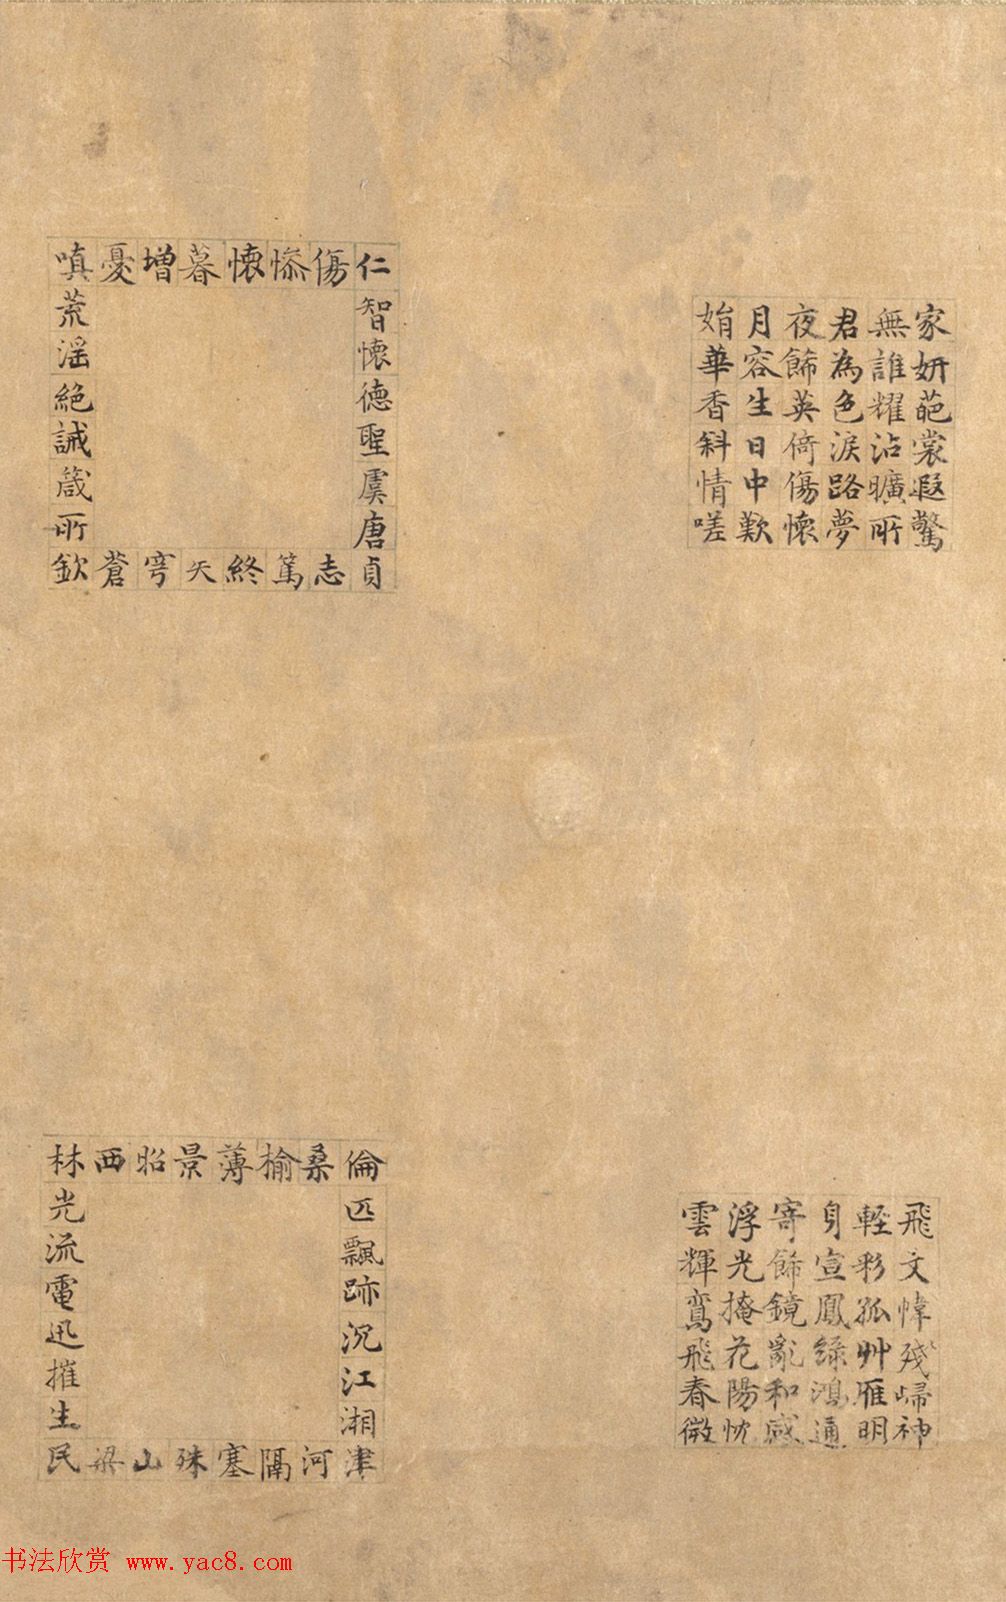 家妍葩裳遐驚
無誰耀沾曠所
君為色淚路夢
夜飾英倚傷懷
月容生日中歎
娟華香斜情嗟
仁智懷德聖虞唐
貞志篤終天穹蒼
欽所箴誡絕淫荒
嗔憂增暮懷慘傷
飛文幃殘歸神
輕彩孤艸雁明
身宣鳳綠鴻通
寄飾鏡亂和感
浮光掩花陽忱
雲輝鸞飛春微
倫匹飄跡沉江湘
津河隔塞殊山梁
民生摧迅電流光
林西昭景薄榆桑
书法欣赏 www.yac8.com